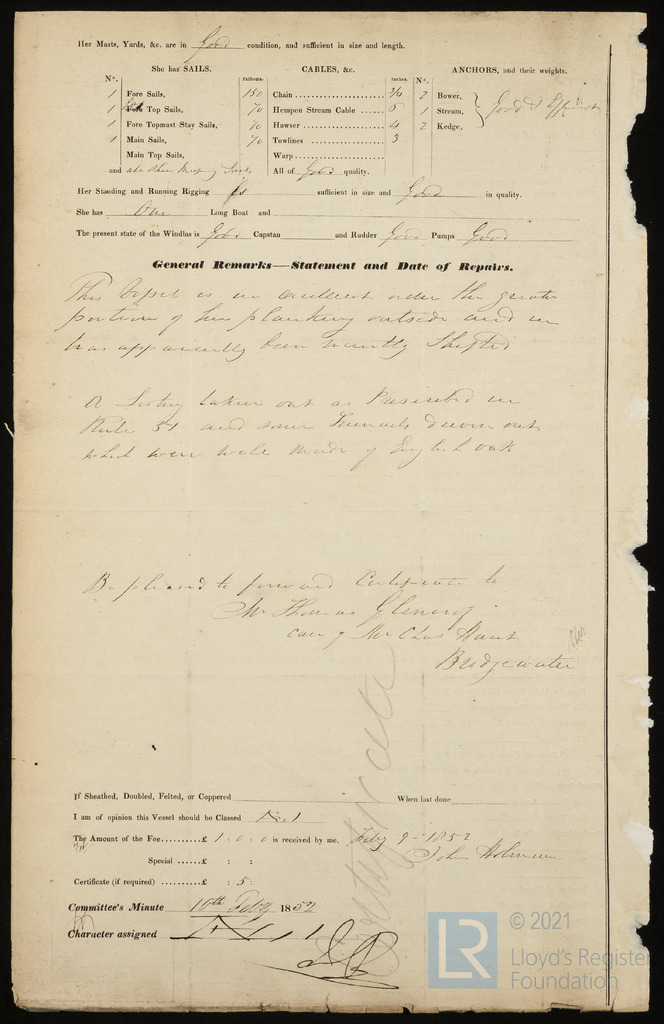 Her Masts, Yards, &c. are in Good condition, and sufficient in size and length.
She has SAILS.
CABLES, &c.
ANCHORS, and their weights.
N°.
Fathoms.
Inches.
N°.
1 Fore Sails,
150 Chain 3/4
2 Bower,
1 Fore Top Sails,
70 Hempen Stream Cable 6
1 Stream,
Good & Efficient
1 Fore Topmast Stay Sails,
70 Hawser 4
2 Kedge,
1 Main Sails,
70 Towlines 3
Main Top Sails,
Warp
and Sails
All of Good quality.
Her Standing and Running Rigging is sufficient in size and Good in quality.
She has One Long Boat and
The present state of the Windlas is Good Capstan and Rudder Good Pumps Good
General Remarks—Statement and Date of Repairs.
This Vessel is in excellent order the greater
portion of her planking outside and in
has apparently been recently Shifted
A Listing taken out as Prescribed in
Rule 51 and some Treenails driven out
which were well made of English oak
Be pleased to forward Certificate to
Mr Thomas
care of Mr Chas Hunt
Bridgewater
Certificate
If Sheathed, Doubled, Felted, or Coppered When last done
I am of opinion this Vessel should be Classed
The Amount of the Fee £ 1 : 0 : 0 is received by me, Feby 9 - 1852
John Holman
Special £ : :
Certificate (if required) £ : 5 :
Committee's Minute 10th Feby 1852
Character assigned
LR
© 2021
Lloyd's Register
Foundation